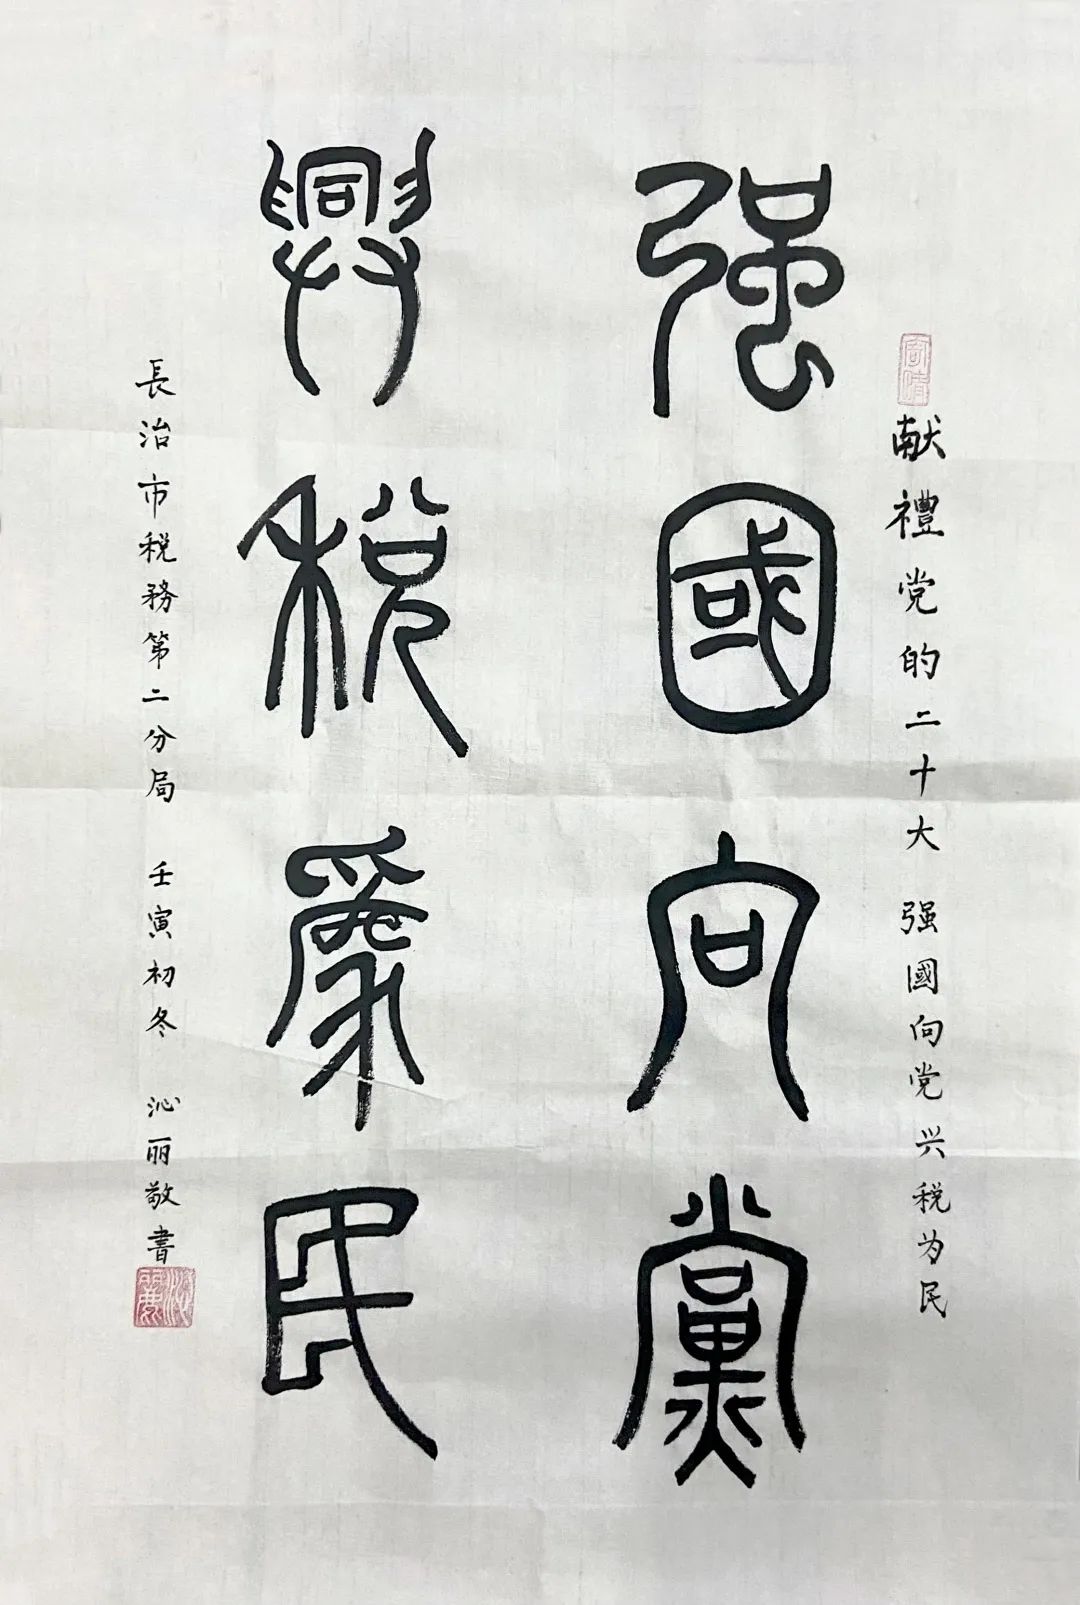 献禮党的二十大 强國向党兴税为民
强國向黨
興税為民
長治市税務第二分局 壬寅初冬 沁丽敬書